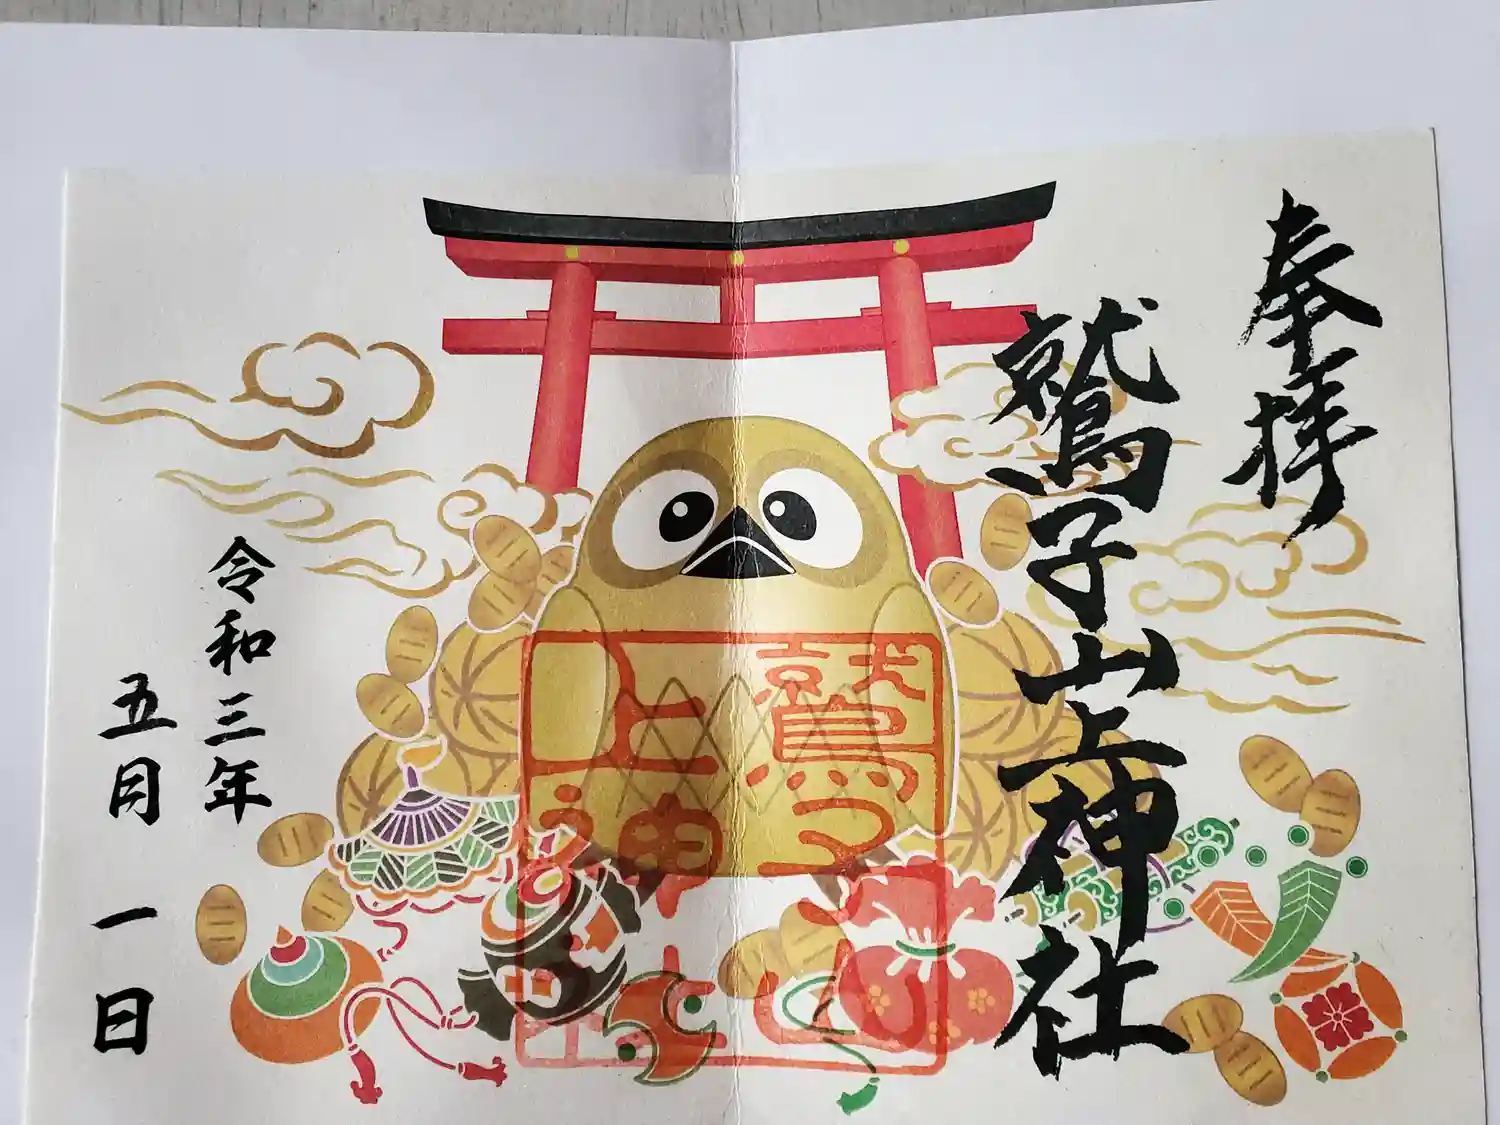 奉拝
鷲子山上神社
令和三年
五月一日
鷲子
山上
神社